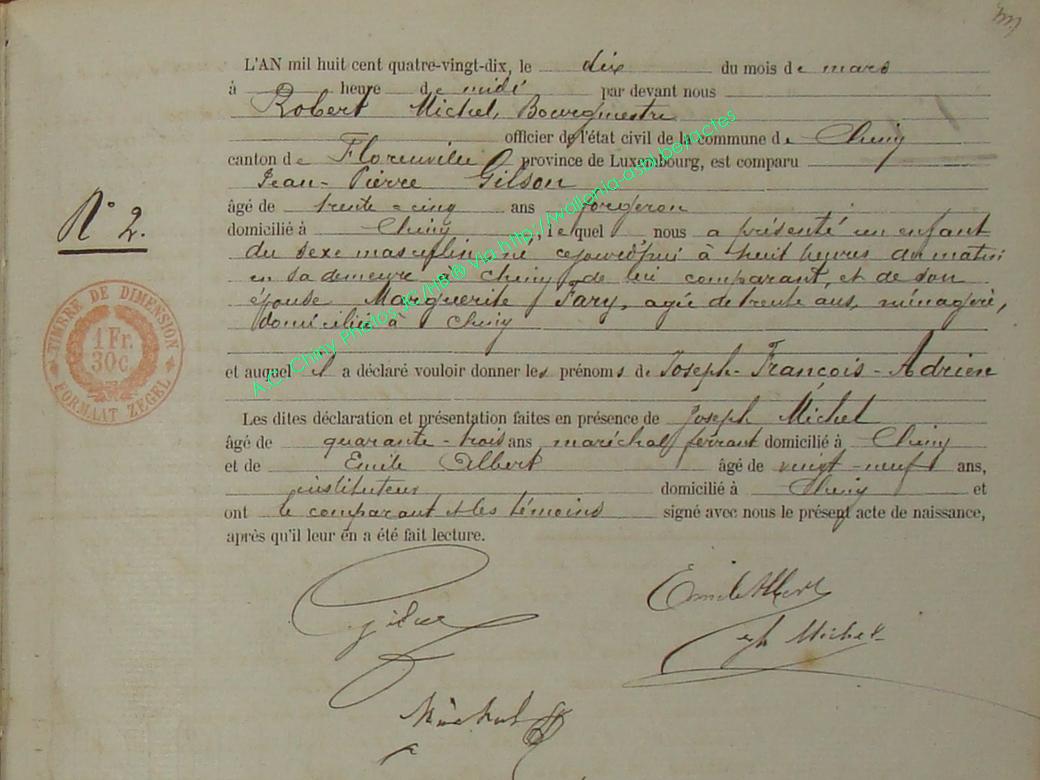 L'AN mil huit cent quatre-vingt-dix, le dix du mois de mars
à heure de midi par devant nous
Robert Michel, Bourgmestre
officier de l'état civil de la commune de Chiny
canton de Florenville province de Luxembourg, est comparu
Jean-Pierre Gilson
âgé de trente-cinq ans forgeron
domicilié à Chiny, lequel nous a présenté un enfant
du sexe masculin, né cejourd'hui à huit heures du matin
en sa demeure à Chiny de lui comparant, et de son
épouse Marguerite Fary, agée de trente ans, ménagère,
domiciliée à Chiny
et auquel il a déclaré vouloir donner les prénoms de Joseph-François-Adrien
Les dites déclaration et présentation faites en présence de Joseph Michel
âgé de quarante-trois ans, maréchal ferrant domicilié à Chiny
et de Emile Albert âgé de vingt-neuf ans,
instituteur domicilié à Chiny et
ont le comparant et les témoins signé avec nous le présent acte de naissance,
après qu'il leur en a été fait lecture.
N° 2.
TIMBRE DE DIMENSION
1 Fr.
30c.
FORMAAT ZEGEL
Gilson
Emile Albert
Jph Michel
Michel R
A.C. Chiny Photos JC/HB ® Via http://wallonia-asbl.be/actes